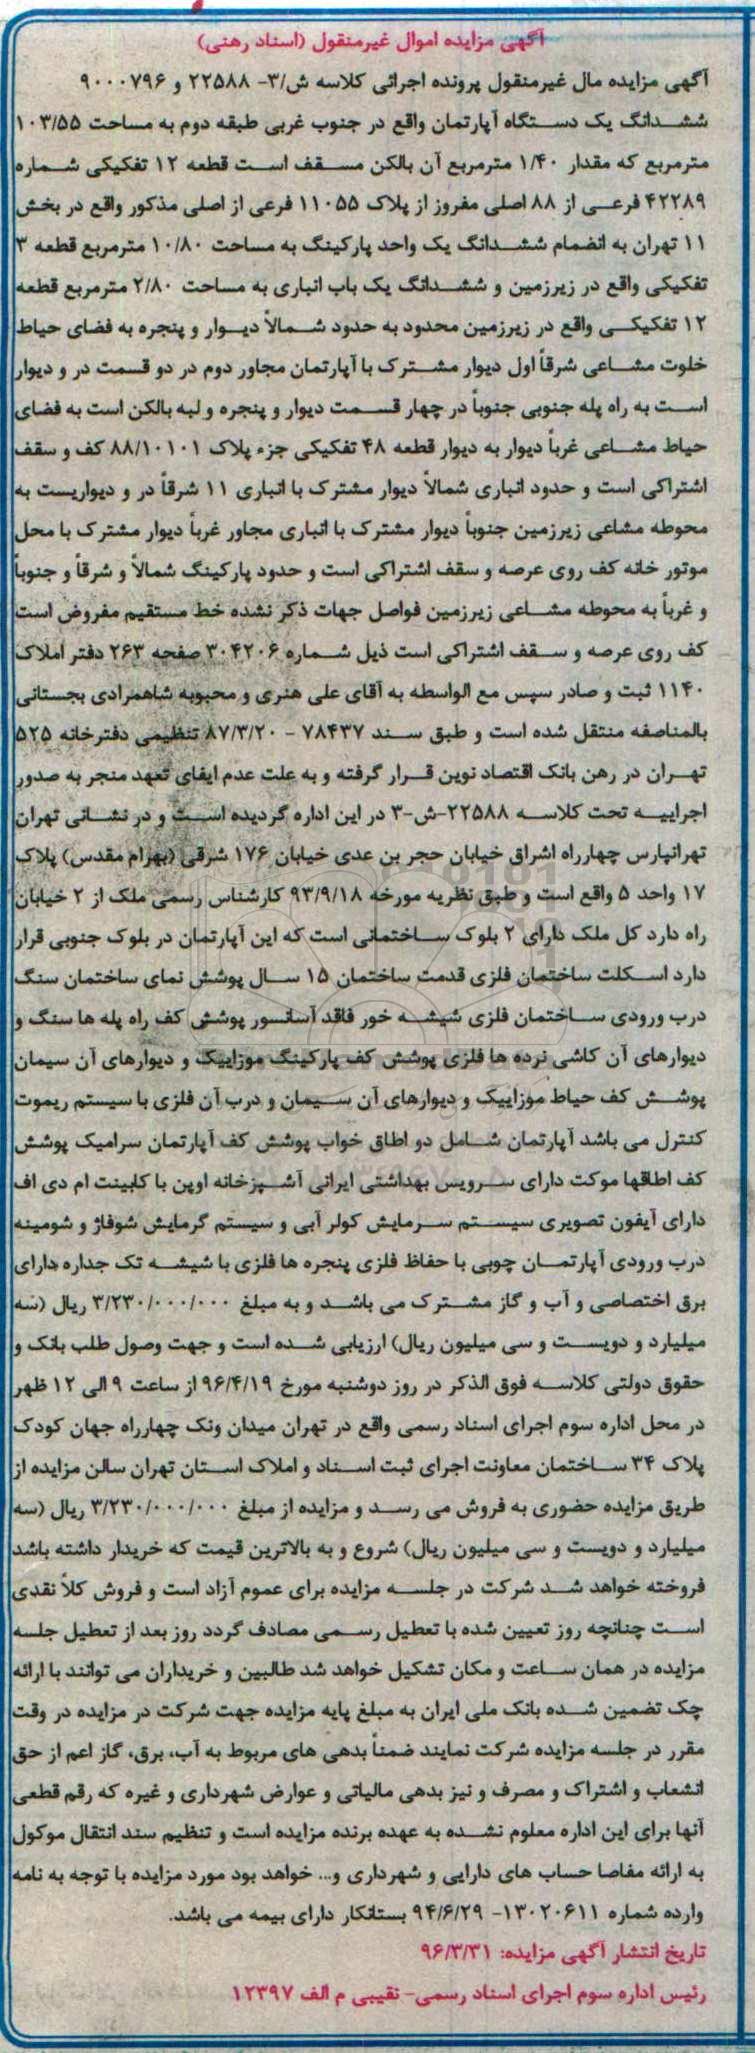 آگهی مزایده اموال غیرمنقول (اسناد رهنی)
آگهی مزایده مال غیرمنقول پرونده اجرائی کلاسه ش/۳- ۲۲۵۸۸ و ۹۰۰۰۷۹۶
ششدانگ یک دستگاه آپارتمان واقع در جنوب غربی طبقه دوم به مساحت ۱۰۳/۵۵
مترمربع که مقدار ۱/۴۰ مترمربع آن بالکن مسقف است قطعه ۱۲ تفکیکی شماره
۴۲۲۸۹ فرعی از ۸۸ اصلی مفروز از پلاک ۱۱۰۵۵ فرعی از اصلی مذکور واقع در بخش
۱۱ تهران به انضمام ششدانگ یک واحد پارکینگ به مساحت ۱۰/۸۰ مترمربع قطعه ۳
تفکیکی واقع در زیرزمین و ششدانگ یک باب انباری به مساحت ۲/۸۰ مترمربع قطعه
۱۲ تفکیکی واقع در زیرزمین محدود به حدود شمالاً دیوار و پنجره به فضای حیاط
خلوت مشاعی شرقاً اول دیوار مشترک با آپارتمان مجاور دوم در دو قسمت در و دیوار
است به راه پله جنوبی جنوباً در چهار قسمت دیوار و پنجره و لبه بالکن است به فضای
حیاط مشاعی غرباً دیوار به دیوار قطعه ۴۸ تفکیکی جزء پلاک ۸۸/۱۰۱۰۱ کف و سقف
اشتراکی است و حدود انباری شمالاً دیوار مشترک با انباری ۱۱ شرقاً در و دیواریست به
محوطه مشاعی زیرزمین جنوباً دیوار مشترک با انباری مجاور غرباً دیوار مشترک با محل
موتور خانه کف روی عرصه و سقف اشتراکی است و حدود پارکینگ شمالاً و شرقاً و جنوباً
و غرباً به محوطه مشاعی زیرزمین فواصل جهات ذکر نشده خط مستقیم مفروض است
کف روی عرصه و سقف اشتراکی است ذیل شماره ۳۰۴۲۰۶ صفحه ۲۶۳ دفتر املاک
۱۱۴۰ ثبت و صادر سپس مع الواسطه به آقای علی هنری و محبوبه شاهمرادی بجستانی
بالمناصفه منتقل شده است و طبق سند ۷۸۴۳۷ - ۸۷/۳/۲۰ تنظیمی دفترخانه ۵۲۵
تهران در رهن بانک اقتصاد نوین قرار گرفته و به علت عدم ایفای تعهد منجر به صدور
اجراییه تحت کلاسه ۲۲۵۸۸-ش-۳ در این اداره گردیده است و در نشانی تهران
تهرانپارس چهارراه اشراق خیابان حجر بن عدی خیابان ۱۷۶ شرقی (بهرام مقدس) پلاک
۱۷ واحد ۵ واقع است و طبق نظریه مورخه ۹۳/۹/۱۸ کارشناس رسمی ملک از ۲ خیابان
راه دارد کل ملک دارای ۲ بلوک ساختمانی است که این آپارتمان در بلوک جنوبی قرار
دارد اسکلت ساختمان فلزی قدمت ساختمان ۱۵ سال پوشش نمای ساختمان سنگ
درب ورودی ساختمان فلزی شیشه خور فاقد آسانسور پوشش کف راه پله ها سنگ و
دیوارهای آن کاشی نرده ها فلزی پوشش کف پارکینگ موزاییک و دیوارهای آن سیمان
پوشش کف حیاط موزاییک و دیوارهای آن سیمان و درب آن فلزی با سیستم ریموت
کنترل می باشد آپارتمان شامل دو اطاق خواب پوشش کف آپارتمان سرامیک پوشش
کف اطاقها موکت دارای سرویس بهداشتی ایرانی آشپزخانه اوپن با کابینت ام دی اف
دارای آیفون تصویری سیستم سرمایش کولر آبی و سیستم گرمایش شوفاژ و شومینه
درب ورودی آپارتمان چوبی با حفاظ فلزی پنجره ها فلزی با شیشه تک جداره دارای
برق اختصاصی و آب و گاز مشترک می باشد و به مبلغ ۳/۲۳۰/۰۰۰/۰۰۰ ریال (سه
میلیارد و دویست و سی میلیون ریال) ارزیابی شده است و جهت وصول طلب بانک و
حقوق دولتی کلاسه فوق الذکر در روز دوشنبه مورخ ۹۶/۴/۱۹ از ساعت ۹ الی ۱۲ ظهر
در محل اداره سوم اجرای اسناد رسمی واقع در تهران میدان ونک چهارراه جهان کودک
پلاک ۳۴ ساختمان معاونت اجرای ثبت اسناد و املاک استان تهران سالن مزایده از
طریق مزایده حضوری به فروش می رسد و مزایده از مبلغ ۳/۲۳۰/۰۰۰/۰۰۰ ریال (سه
میلیارد و دویست و سی میلیون ریال) شروع و به بالاترین قیمت که خریدار داشته باشد
فروخته خواهد شد شرکت در جلسه مزایده برای عموم آزاد است و فروش کلاً نقدی
است چنانچه روز تعیین شده با تعطیل رسمی مصادف گردد روز بعد از تعطیل جلسه
مزایده در همان ساعت و مکان تشکیل خواهد شد طالبین و خریداران می توانند با ارائه
چک تضمین شده بانک ملی ایران به مبلغ پایه مزایده جهت شرکت در مزایده در وقت
مقرر در جلسه مزایده شرکت نمایند ضمناً بدهی های مربوط به آب، برق، گاز اعم از حق
انشعاب و اشتراک و مصرف و نیز بدهی مالیاتی و عوارض شهرداری و غیره که رقم قطعی
آنها برای این اداره معلوم نشده به عهده برنده مزایده است و تنظیم سند انتقال موکول
به ارائه مفاصا حساب های دارایی و شهرداری و... خواهد بود مورد مزایده با توجه به نامه
وارده شماره ۱۳۰۲۰۶۱۱- ۹۴/۶/۲۹ بستانکار دارای بیمه می باشد.
تاریخ انتشار آگهی مزایده: ۹۶/۳/۳۱
رئیس اداره سوم اجرای اسناد رسمی- نقیبی م الف ۱۲۳۹۷